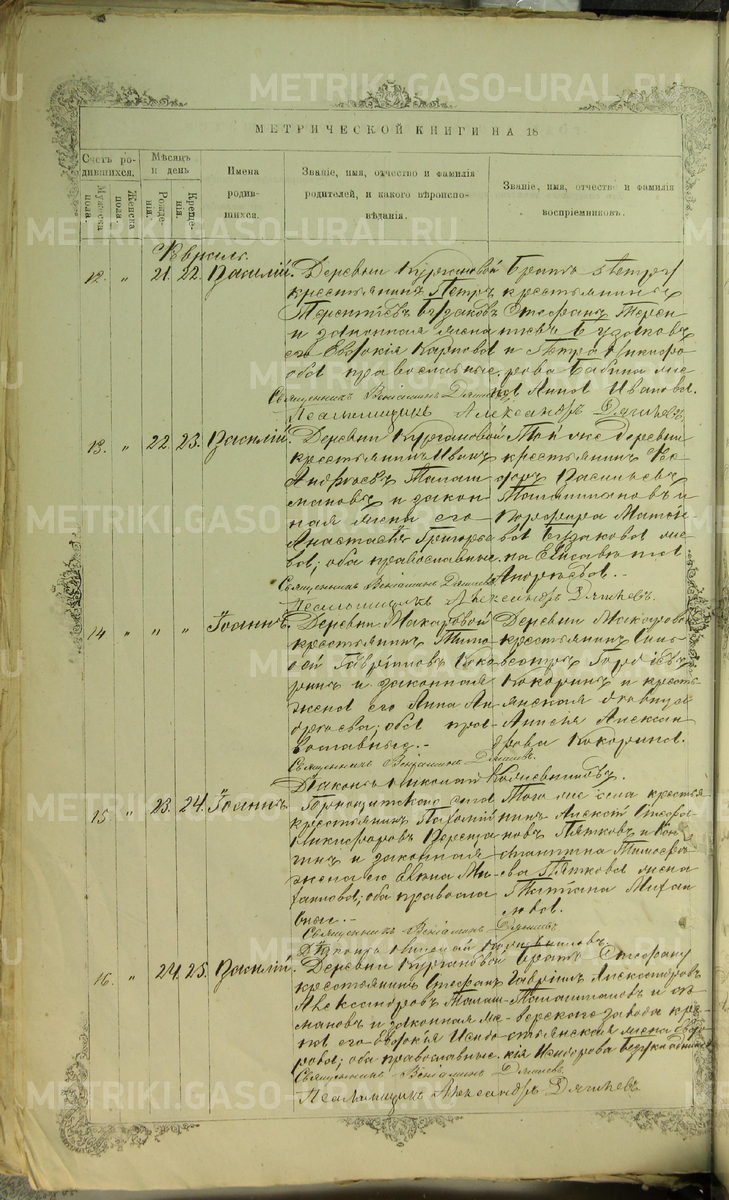 МЕТРИЧЕСКОЙ КНИГИ НА 18
Счетъ ро-
дившихся.
Мужеска
пола.
Женска
пола
Мѣсяцъ
и день
Рожде-
нія.
Креще-
нія.
Имена
родив-
шихся.
Званіе, имя, отчество и фамилія
родителей, и какого вѣроиспо-
вѣданія.
Званіе, имя, отчество и фамилія
воспріемниковъ.
Февраль.
12. " 21. 22. Василій.
Деревни Кургановой
крестьянинъ Петръ
Терентіевъ Бузаковъ
и законная жена
его Евдокія Карпова
оба православные.
Братъ Петру
крестьянинъ
Стефанъ Терен
тіевъ Бузаковъ
и Петра Никифо
рова Бабина же
на Анна Иванова.
Священникъ Веніаминъ
Псаломщикъ Александръ
13. " 22. 23. Василій.
Деревни Кургановой
крестьянинъ Иванъ
Андреевъ Талаш
мановъ и закон
ная жена его
Анастасія Григорье
ва; оба православные.
Той же деревни
крестьянинъ
Василіевъ
Талашмановъ и
Порфира Матѳі
ева Бузакова же
на Елисавета
Андреева.-
Священникъ Веніаминъ
Псаломщикъ Александръ
14 " " " Іоаннъ.
Деревни Макаровой
крестьянинъ Тимо
ѳей Гавріиловъ Коко
ринъ и законная
жена его Анна Ан
дреева; оба пра-
вославные.-
Деревни Макаровой
крестьянинъ Силь
вестръ Гордѣевъ
Кокоринъ и кресть
янская вдовица
Анисія Алексан
дрова Кокорина.
Священникъ Веніаминъ
Діаконъ Николай
15 " 23. 24. Іоаннъ.
села
крестьянинъ Пахомій
Никифоровъ
и законная
жена его Евгенія Ми
хаилова; оба правосла
вные.-
Того же села кресть
нинъ Алексѣй Стефа
новъ Пятковъ и Кон
стантина Тимоѳе
ева Пяткова жена
Татіана Михаи
лова.
Священникъ Веніаминъ
Діаконъ Николай
16. " 24. 25. Василій.
Деревни Кургановой
крестьянинъ Стефанъ
Александровъ Талаш-
мановъ и законная же-
на его Евдокія Исидо-
рова; оба православные.
Братъ Стефану
Гавріилъ Александровъ
Талашмановъ и
верскаго завода кре
стьянская жена Евдо
кія Исидорова
Священникъ Веніаминъ
Псаломщикъ Александръ
METRIKI.GASO-URAL.RU